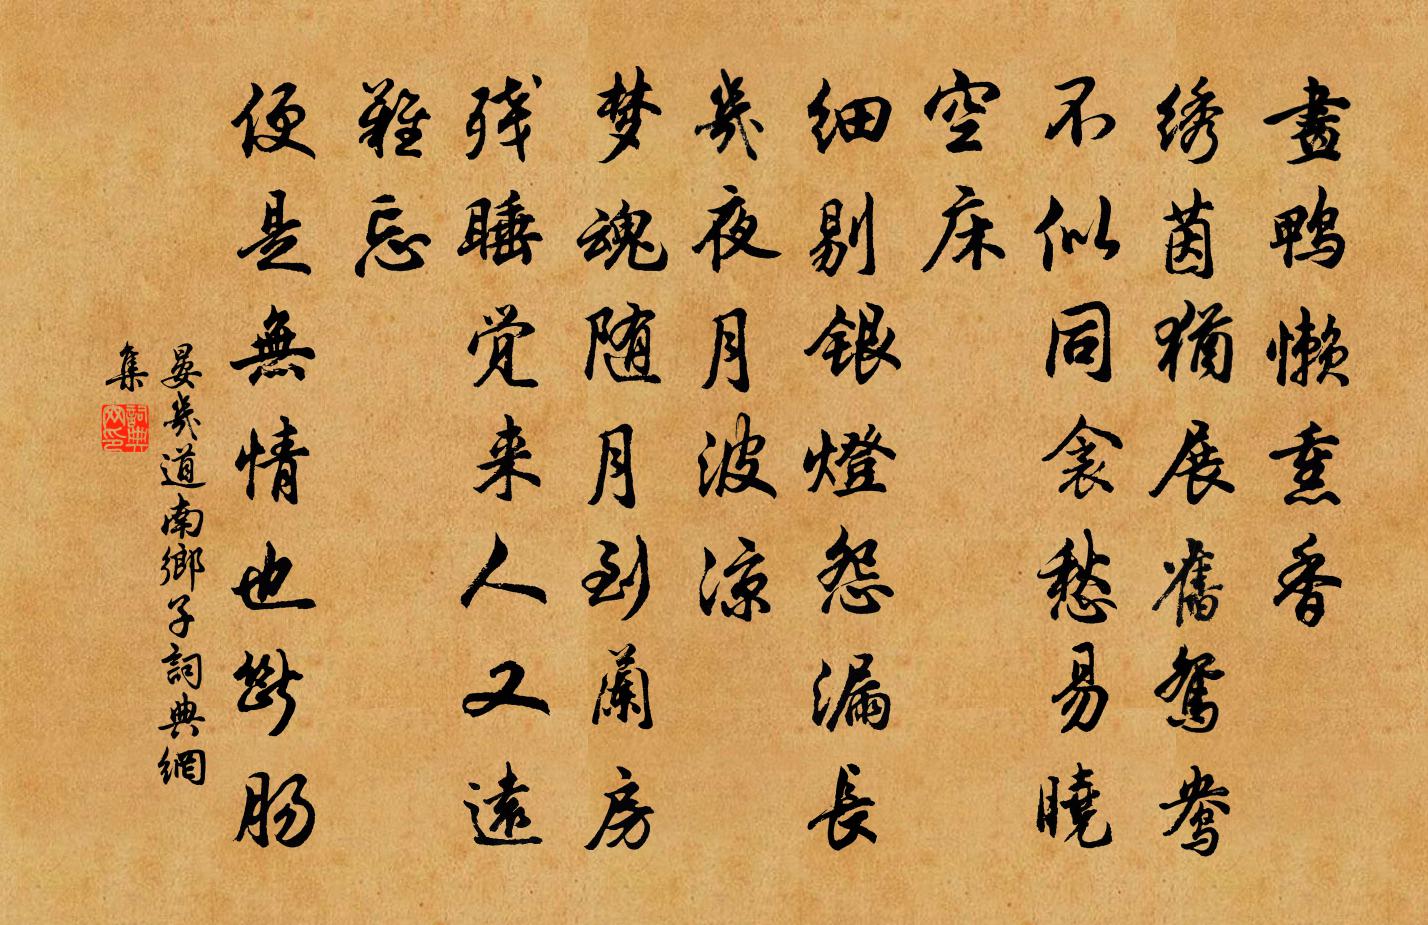 畫鴨懶熏香
绣茵猶展舊鴛鴦
不似同衾愁易曉
空床
细剔银燈怨漏長
幾夜月波涼
梦魂随月到蘭房
残睡觉来人又遠
難忘
便是無情也斷腸
晏幾道南鄉子詞典網
集
詞典
网印